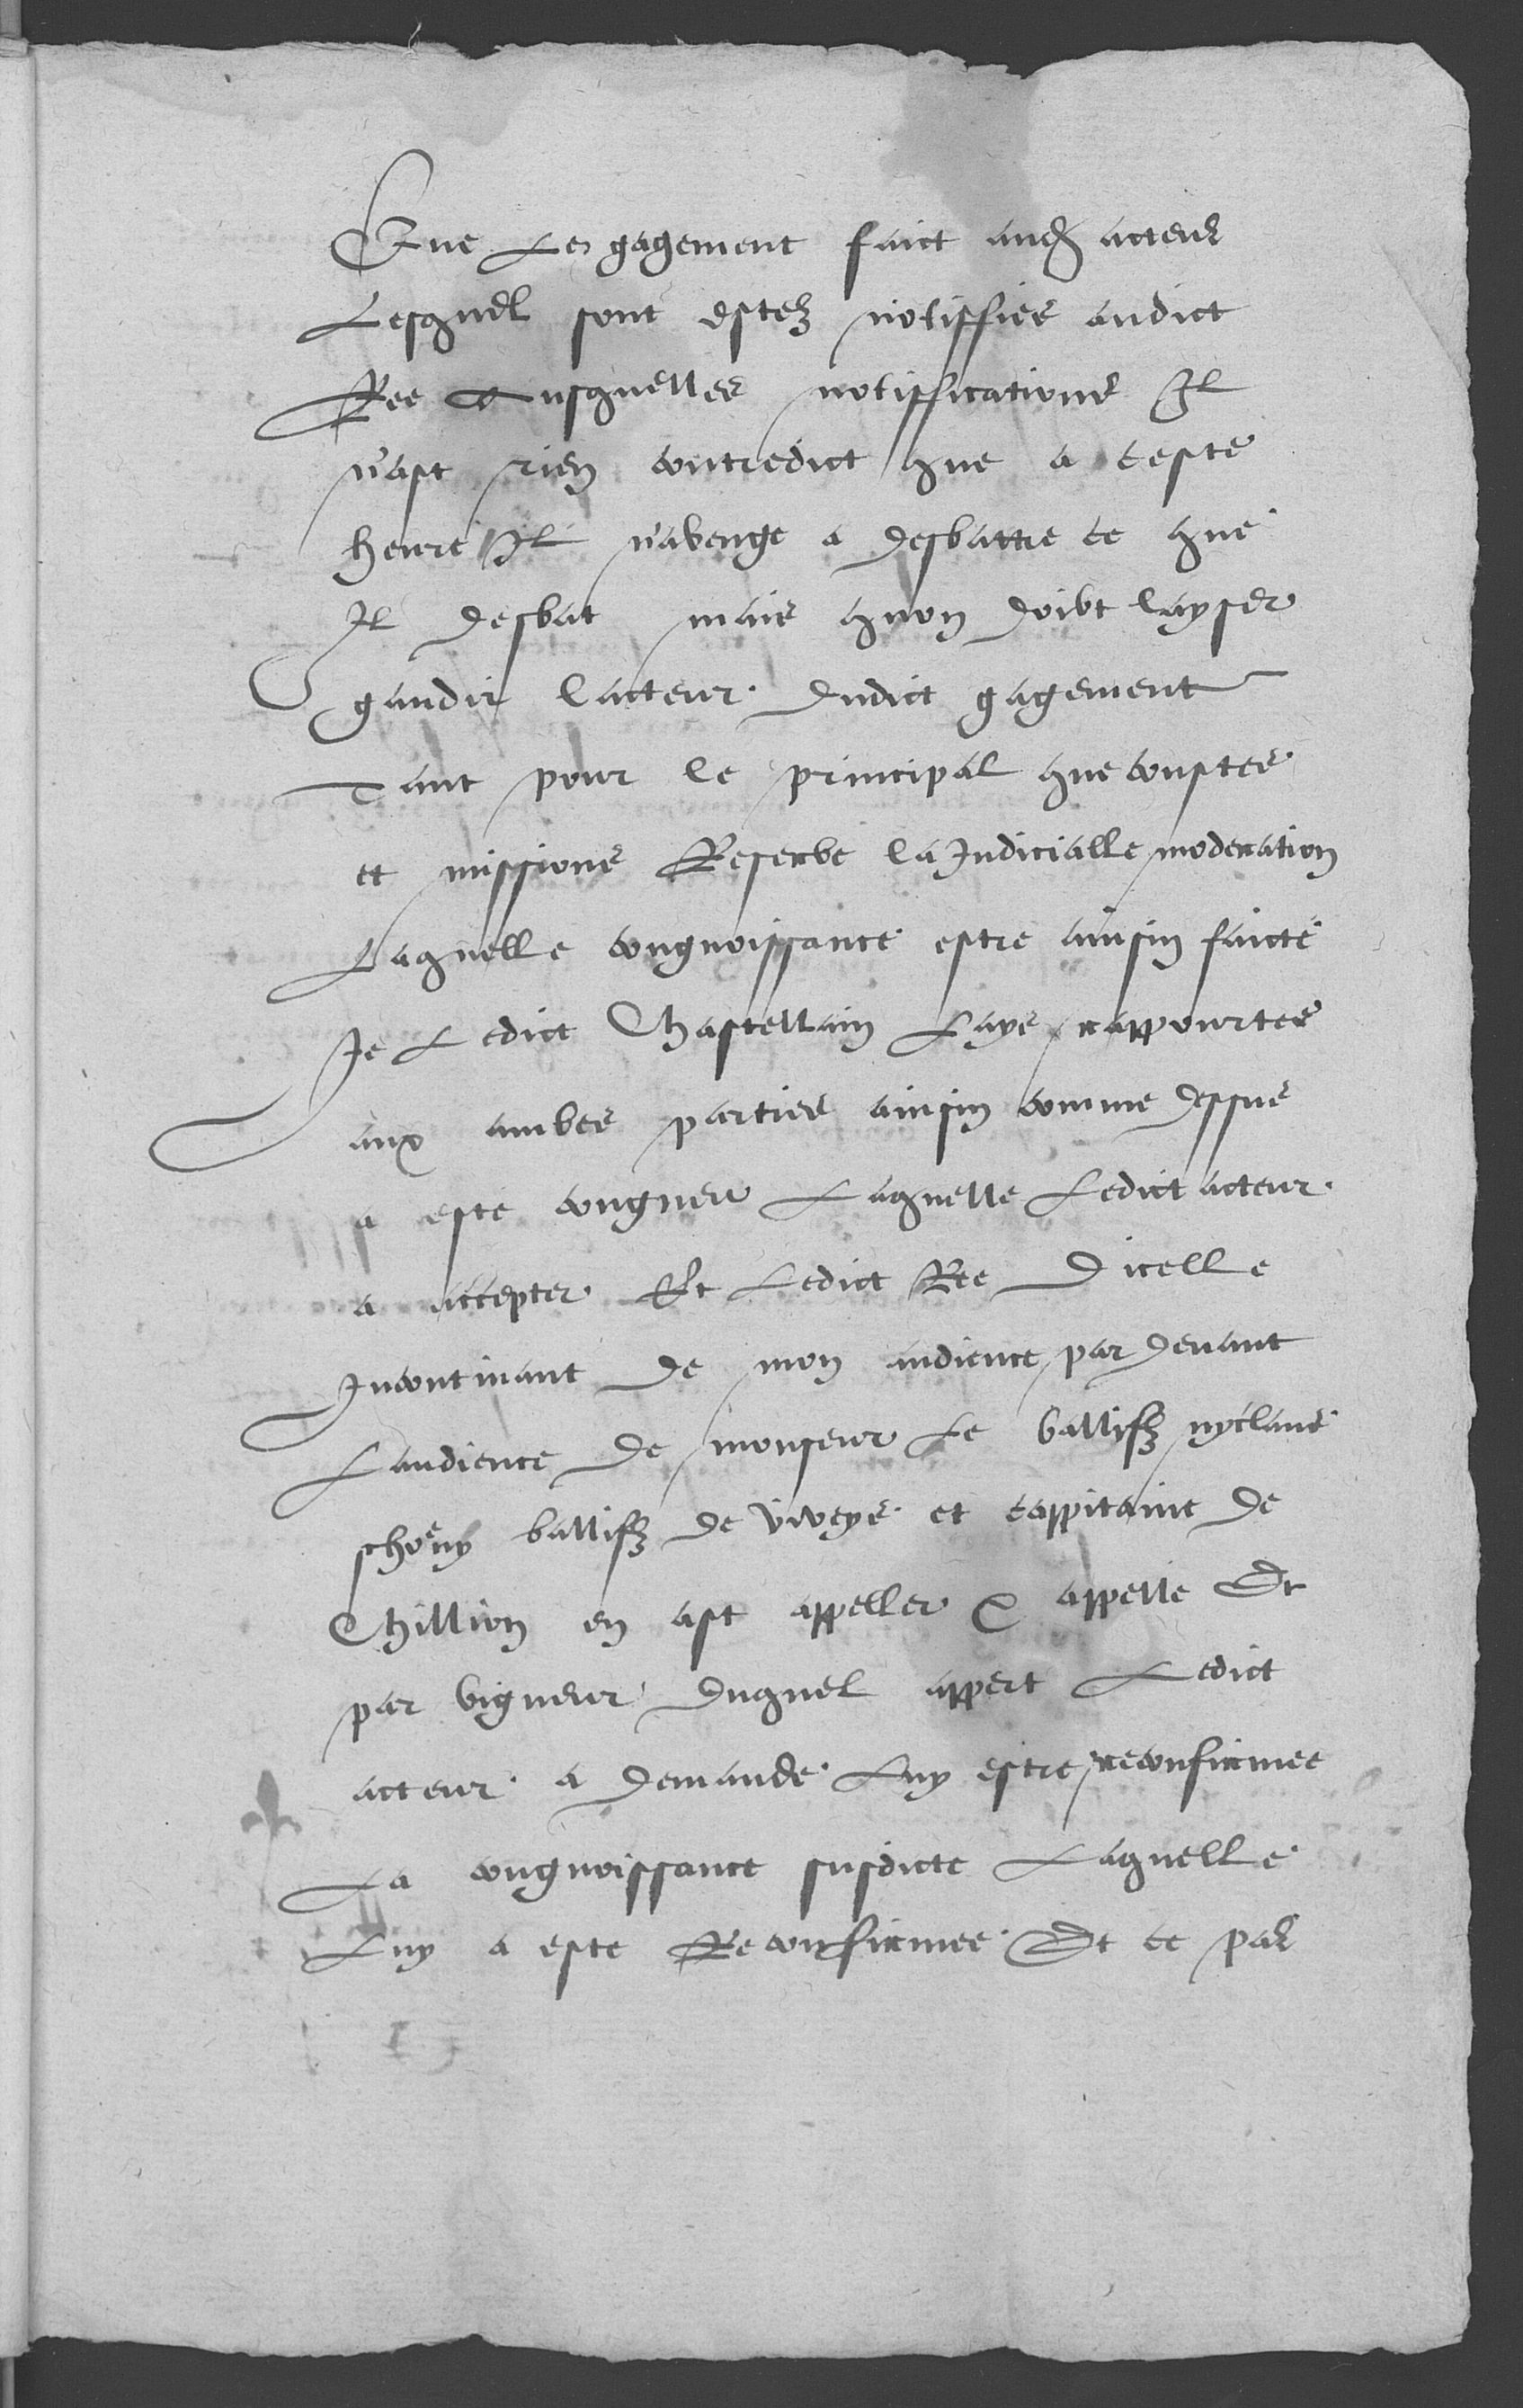 Que Les gagement faict aud acteur
Lesquel sont estez notiffies audict
Ree Ausquelles notiffications Il
nast rien contredict que a ceste
heure Il navenge a desbattre ce que
Il desbat mais quon doibt layser
gaudir lacteur dudict gagement
Tant pour le principal que coustes
et missions Reserbe la Judicialle moderation
Laquelle congnoissance estre ainsin faicte
Je Ledict Chastellain Lays rappourtes
aux ambes parties ainsin comme dessus
a este congneu Laquelle Ledict acteur
a accepter Et Ledict Ree Dicelle
Incontinant de mon audience par devant
Laudience de monseur Le ballifz nyclaus
schöny ballifz de viveys et cappitaine de
Chillion en ast appeller & appelle Et
par vigueur duquel appert Ledict
acteur a demande Luy estre reconfirmee
La congnoissance susdicte Laquelle
Luy a este Reconfirmee Et ce par